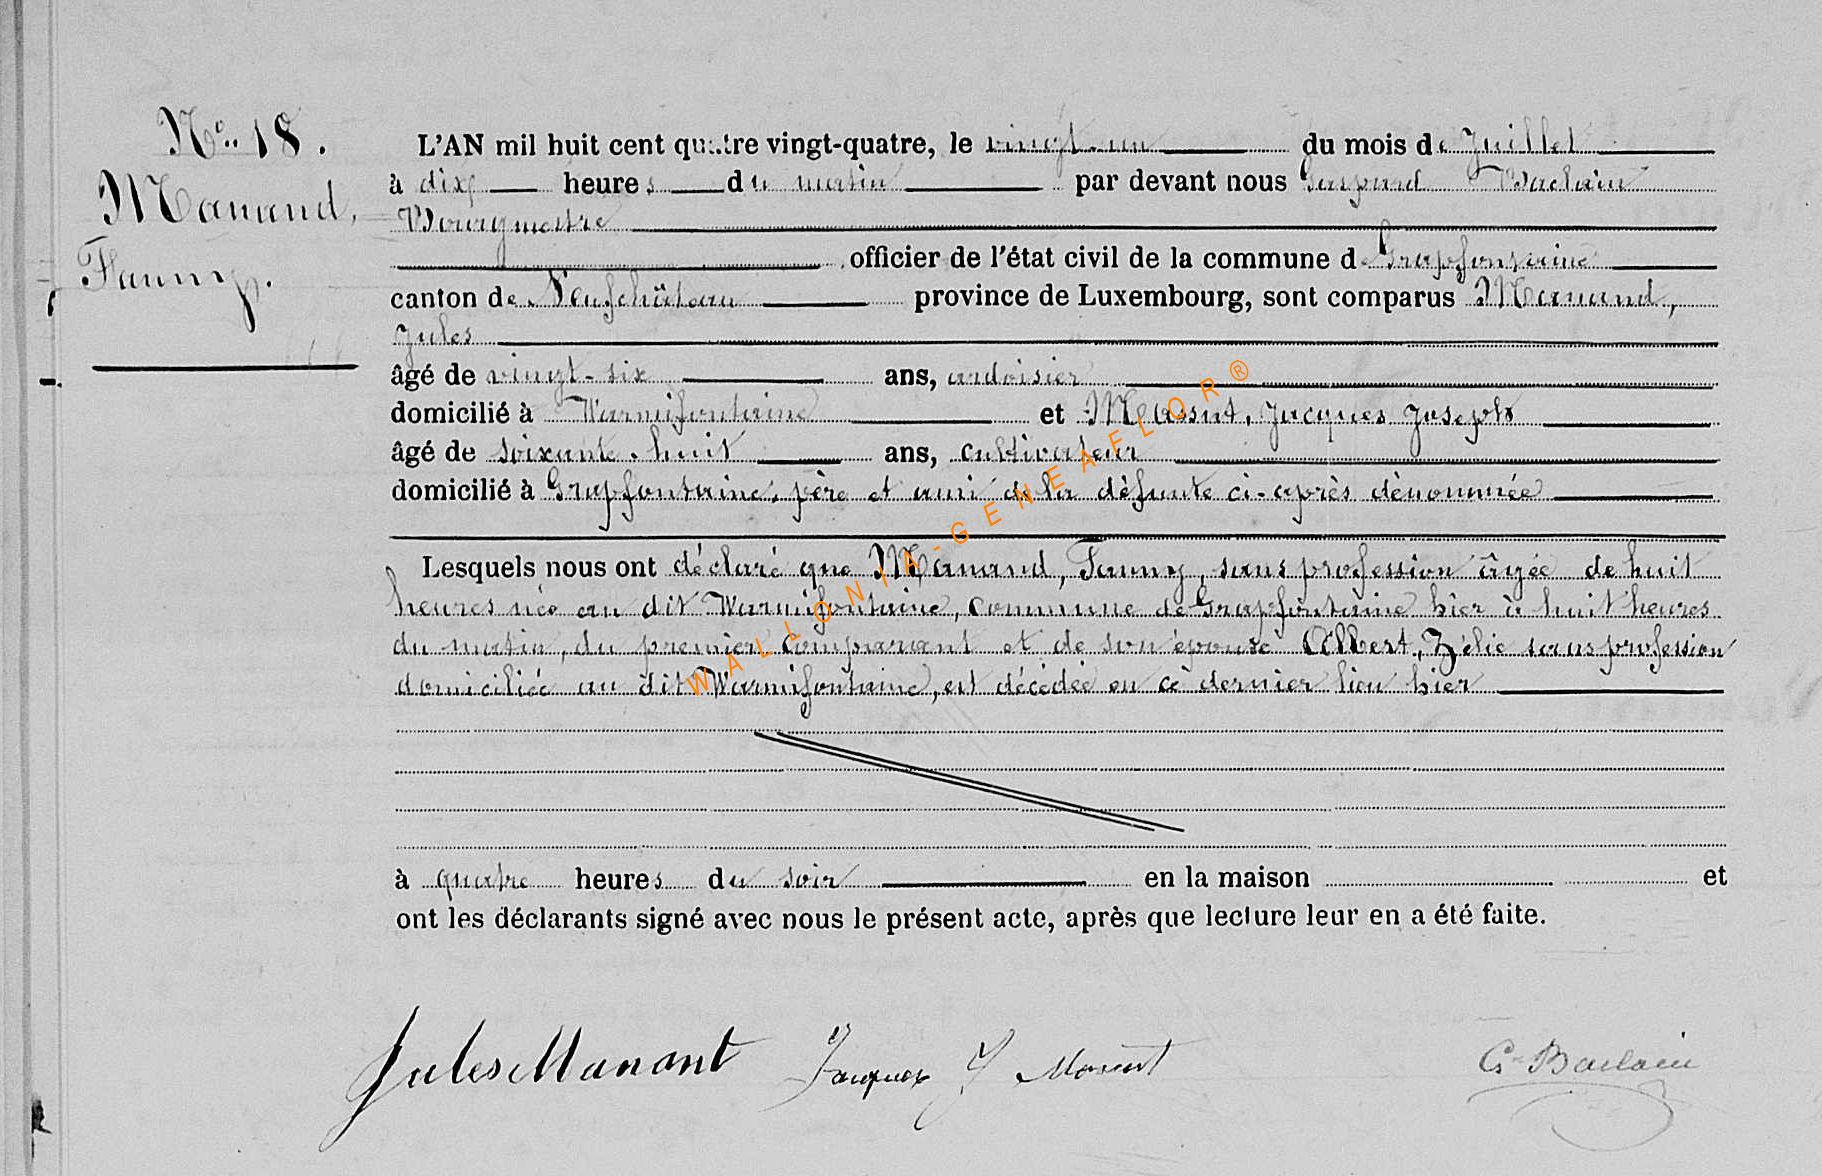 N° 18.
Manand,
Fanny.
L'AN mil huit cent quatre vingt-quatre, le vingt-un du mois de Juillet
à dix heures du matin par devant nous Gaspard Baclain
Bourgmestre
officier de l'état civil de la commune de Grapfontaine
canton de Neufchâteau province de Luxembourg, sont comparus Manand,
Jules
âgé de vingt-six ans, ardoisier
domicilié à Warmifontaine et Massut, Jacques Joseph
âgé de soixante-huit ans, cultivateur
domicilié à Grapfontaine, père et ami de la défunte ci-après dénommée
Lesquels nous ont déclaré que Manand, Fanny, sans profession âgée de huit
heures née au dit Warmifontaine, commune de Grapfontaine hier à huit heures
du matin, du premier comparant et de son épouse Albert, Zélie sans profession
domiciliée au dit Warmifontaine, est décédée en ce dernier lieu hier
à quatre heures du soir en la maison et
ont les déclarants signé avec nous le présent acte, après que lecture leur en a été faite.
Jules Manant Jacques J G. Baclain
WALLONIA-GENEAFLOR®